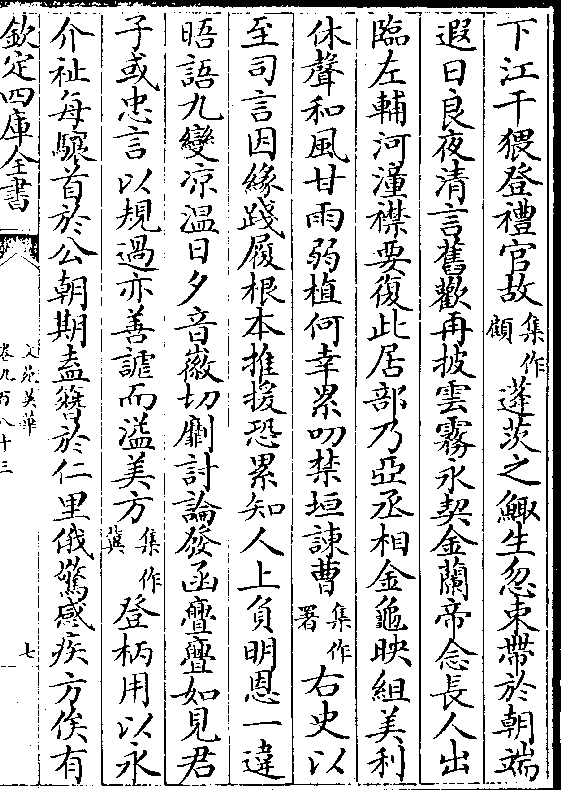 下江干猥登禮官故集作顧蓬茨之鯫生忽束帶於朝端
遐日良夜清言舊歡再披雲霧永契金蘭帝念長人出
臨左輔河潼襟要復此居部乃亞丞相金龜映組美利
休聲和風甘雨弱植何幸累叨禁垣諫曹集作署右史以
至司言因緣踐履根本推援恐累知人上負明恩一違
晤語九變凉溫日夕音徽切劘討論發函亹亹如見君
子或忠言以規過亦善謔而溢美方集作冀登柄用以永
介祉每驤首於公朝期盍簮於仁里俄驚感疾方俟有
欽定四庫全書
文苑英華
卷九百八十三
七